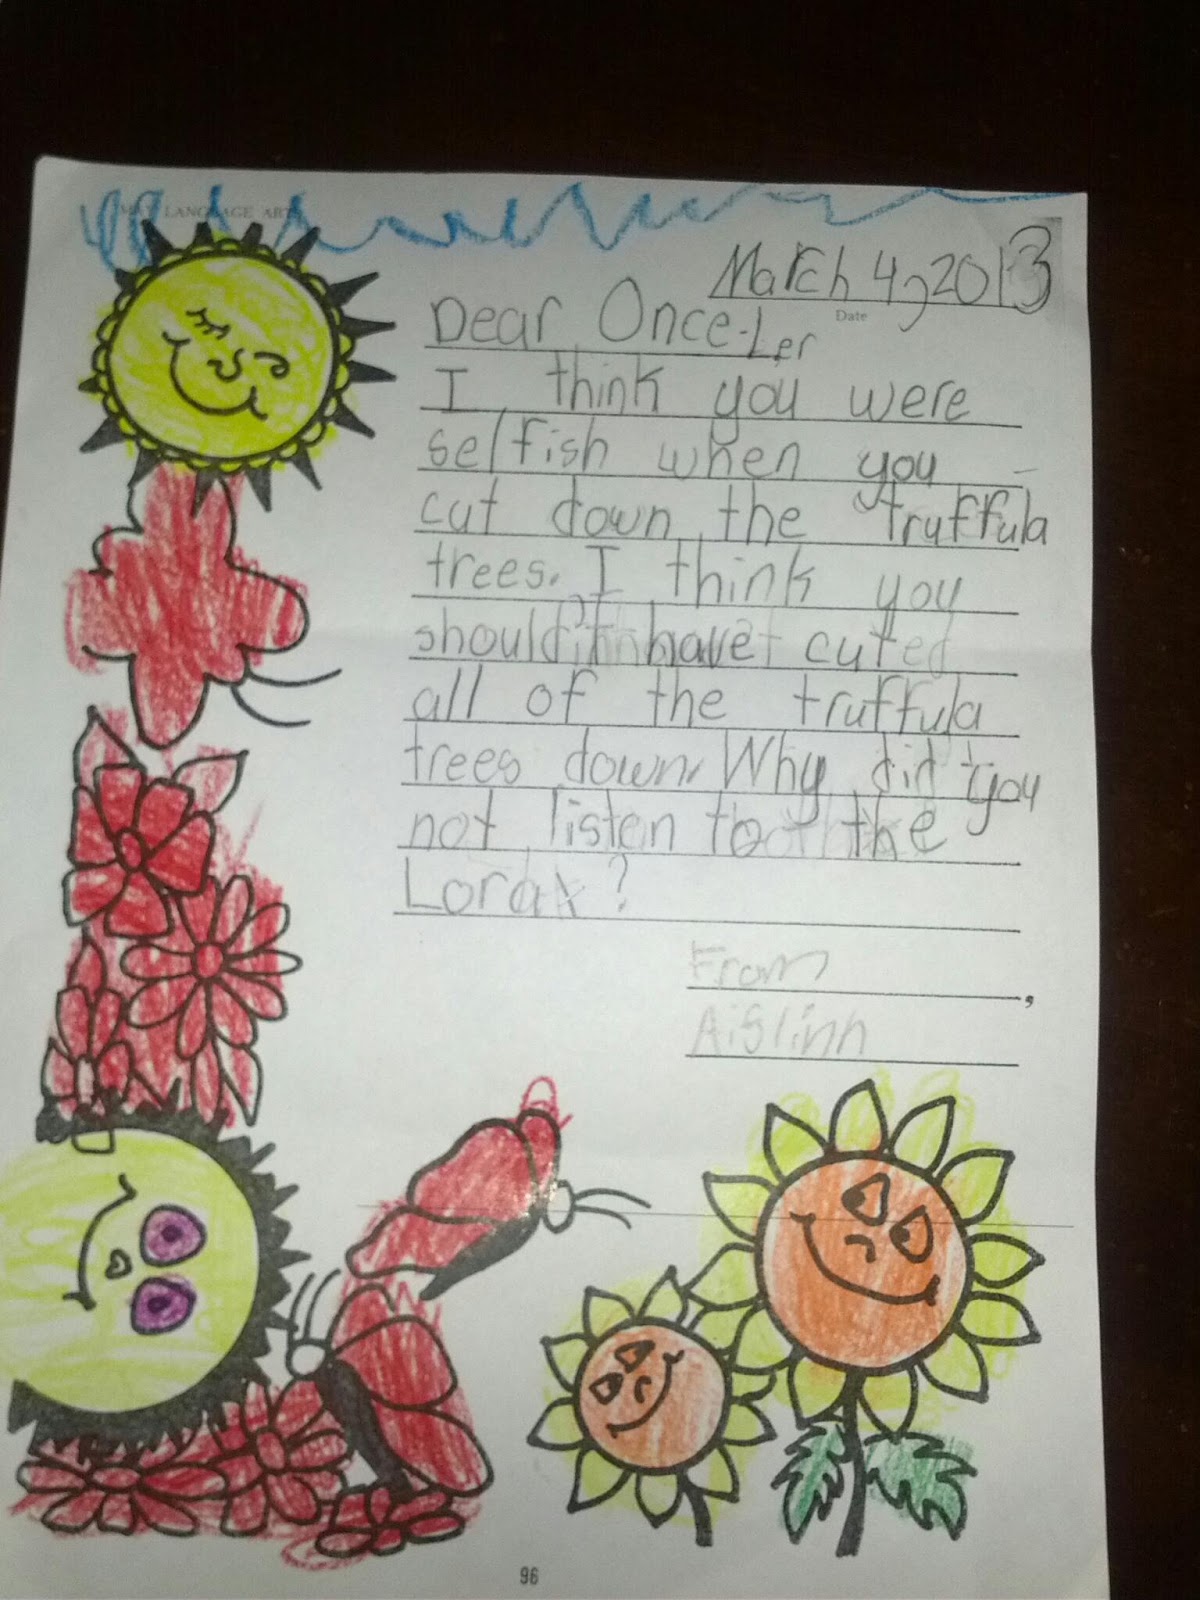 LANGUAGE ART
March 4, 2013
Date
Dear Once-Ler
I think you were
selfish when you
cut down the truffula
trees. I think you
should'nt have cuted
all of the truffula
trees down. Why did you
not listen to the
Lorax?
From,
Aislinn
96